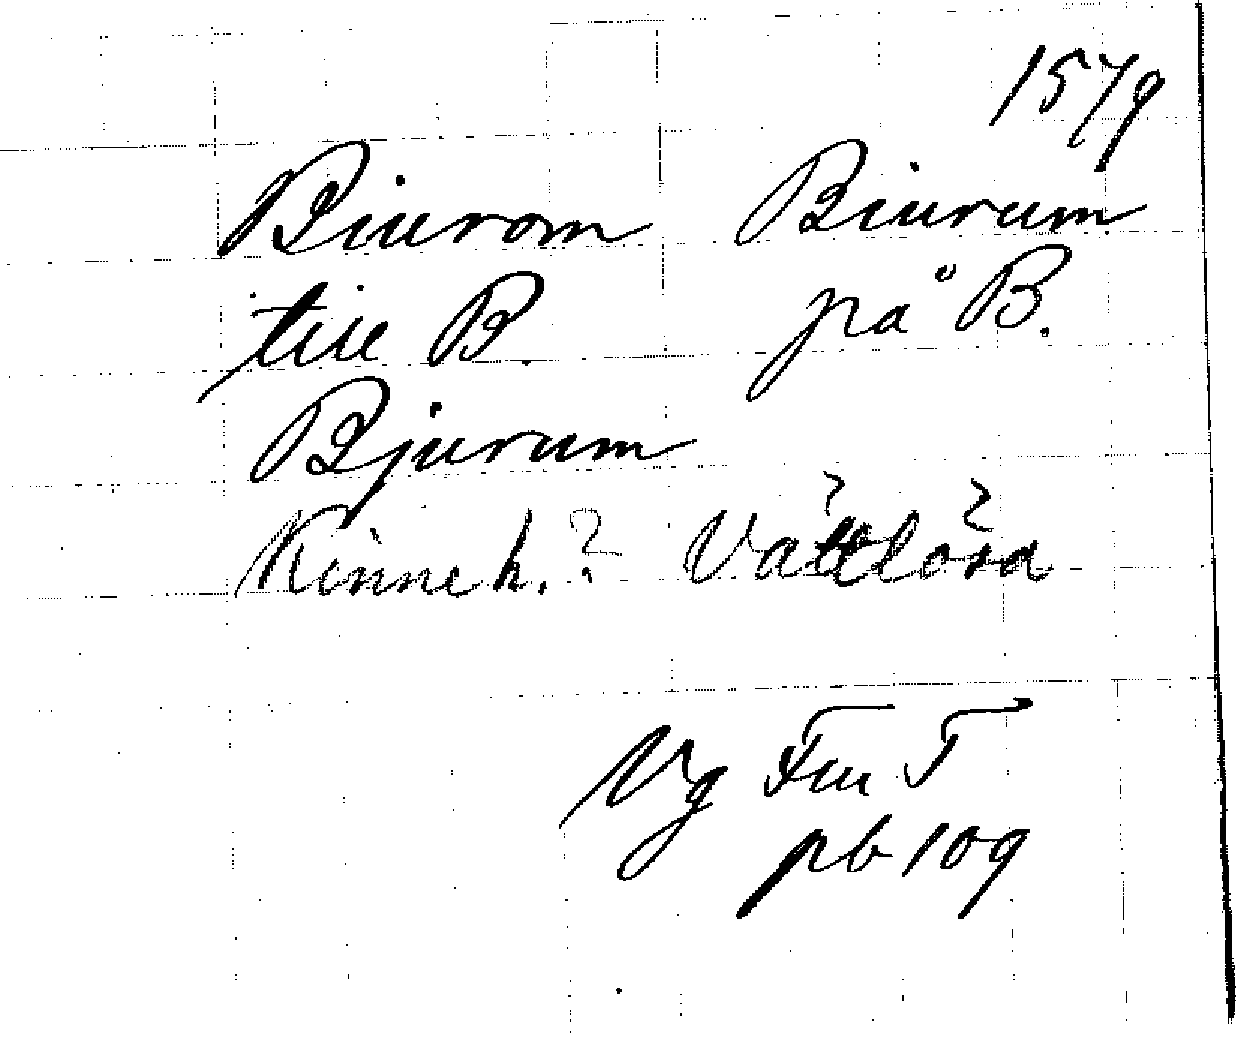 1579
Biurom Biurum
till B. på B.
Bjurum
Kinneh.? Vättlösa
Vg FnT
pb 109